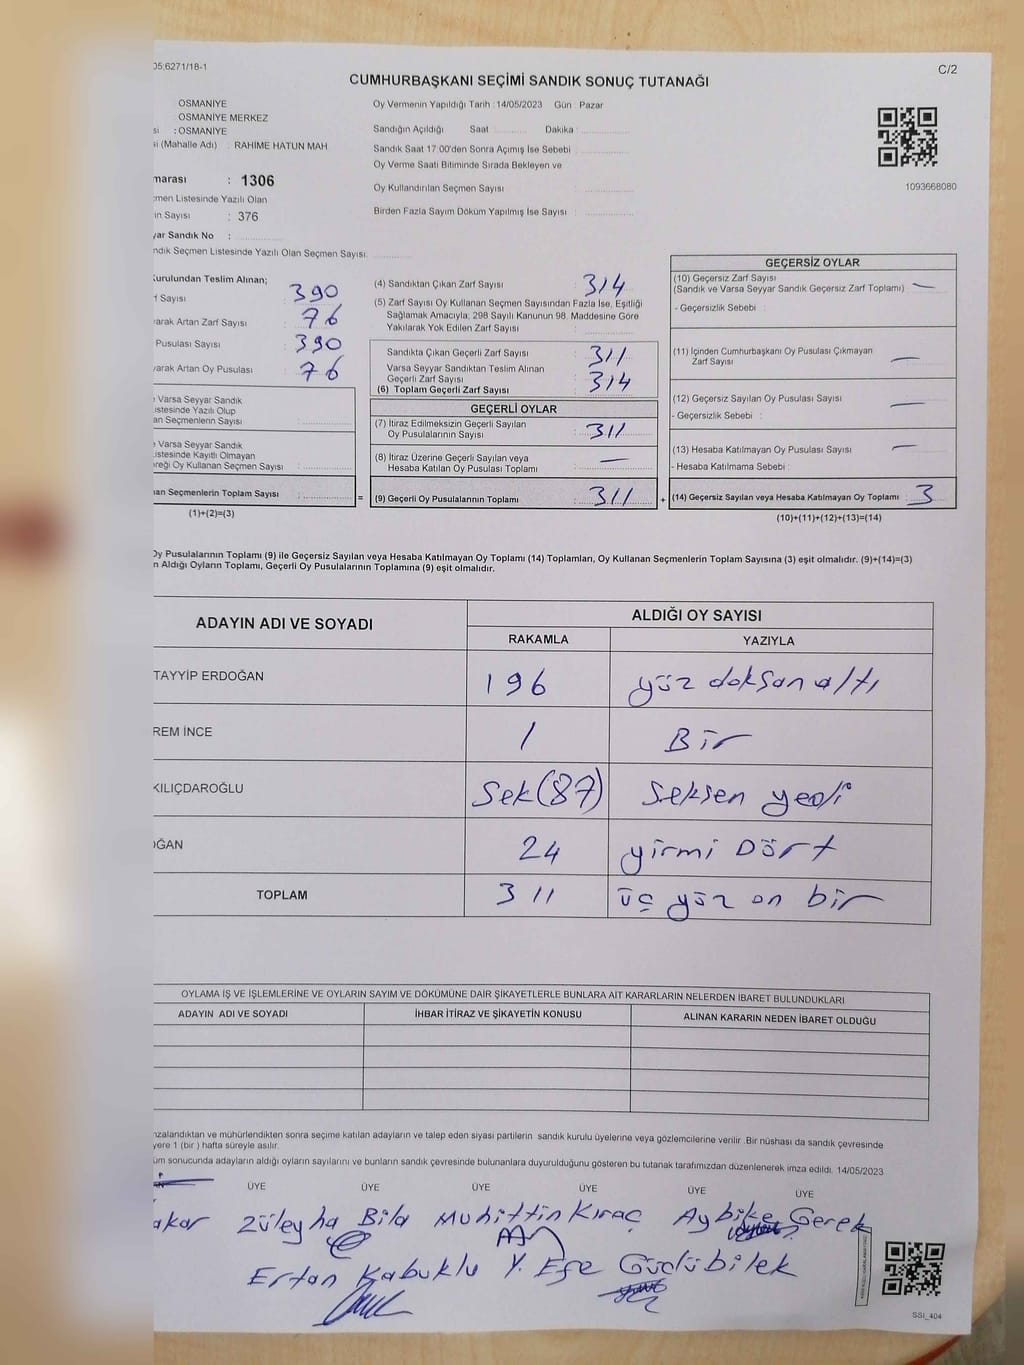 05:6271/18-1
C/2
CUMHURBAŞKANI SEÇİMİ SANDIK SONUÇ TUTANAĞI
OSMANİYE
OSMANİYE MERKEZ
si : OSMANİYE
si (Mahalle Adı) : RAHIME HATUN MAH
marası : 1306
men Listesinde Yazılı Olan
in Sayısı : 376
yar Sandık No :
ndık Seçmen Listesinde Yazılı Olan Seçmen Sayısı:
Oy Vermenin Yapıldığı Tarih : 14/05/2023 Gün : Pazar
Sandığın Açıldığı Saat Dakika :
Sandık Saat 17:00'den Sonra Açımış İse Sebebi :
Oy Verme Saati Bitiminde Sırada Bekleyen ve
Oy Kullandırılan Seçmen Sayısı :
Birden Fazla Sayım Döküm Yapılmış İse Sayısı :
1093668080
Kurulundan Teslim Alınan;
f Sayısı : 390
arak Artan Zarf Sayısı : 76
Pusulası Sayısı : 390
arak Artan Oy Pusulası : 76
Varsa Seyyar Sandık
istesinde Yazılı Olup
an Seçmenlerin Sayısı :
Varsa Seyyar Sandık
istesinde Kayıtlı Olmayan
reği Oy Kullanan Seçmen Sayısı :
an Seçmenlerin Toplam Sayısı : =
(1)+(2)=(3)
(4) Sandıktan Çıkan Zarf Sayısı : 314
(5) Zarf Sayısı Oy Kullanan Seçmen Sayısından Fazla İse, Eşitliği
Sağlamak Amacıyla, 298 Sayılı Kanunun 98. Maddesine Göre
Yakılarak Yok Edilen Zarf Sayısı :
Sandıkta Çıkan Geçerli Zarf Sayısı : 311
Varsa Seyyar Sandıktan Teslim Alınan
Geçerli Zarf Sayısı : 314
(6) Toplam Geçerli Zarf Sayısı :
GEÇERLİ OYLAR
(7) İtiraz Edilmeksizin Geçerli Sayılan
Oy Pusulalarının Sayısı : 311
(8) İtiraz Üzerine Geçerli Sayılan veya
Hesaba Katılan Oy Pusulası Toplamı : —
(9) Geçerli Oy Pusulalarının Toplamı : 311 +
GEÇERSİZ OYLAR
(10) Geçersiz Zarf Sayısı
(Sandık ve Varsa Seyyar Sandık Geçersiz Zarf Toplamı) : —
- Geçersizlik Sebebi :
(11) İçinden Cumhurbaşkanı Oy Pusulası Çıkmayan
Zarf Sayısı : —
(12) Geçersiz Sayılan Oy Pusulası Sayısı : —
- Geçersizlik Sebebi :
(13) Hesaba Katılmayan Oy Pusulası Sayısı : —
- Hesaba Katılmama Sebebi :
(14) Geçersiz Sayılan veya Hesaba Katılmayan Oy Toplamı : 3
(10)+(11)+(12)+(13)=(14)
Oy Pusulalarının Toplamı (9) ile Geçersiz Sayılan veya Hesaba Katılmayan Oy Toplamı (14) Toplamları, Oy Kullanan Seçmenlerin Toplam Sayısına (3) eşit olmalıdır. (9)+(14)=(3)
n Aldığı Oyların Toplamı, Geçerli Oy Pusulalarının Toplamına (9) eşit olmalıdır.
ADAYIN ADI VE SOYADI
ALDIĞI OY SAYISI
RAKAMLA YAZIYLA
TAYYİP ERDOĞAN 196 yüz doksan altı
REM İNCE 1 Bir
KILIÇDAROĞLU Sek(87) Seksen yedi
OĞAN 24 yirmi Dört
TOPLAM 311 üç yüz on bir
OYLAMA İŞ VE İŞLEMLERİNE VE OYLARIN SAYIM VE DÖKÜMÜNE DAİR ŞİKAYETLERLE BUNLARA AİT KARARLARIN NELERDEN İBARET BULUNDUKLARI
ADAYIN ADI VE SOYADI İHBAR İTİRAZ VE ŞİKAYETİN KONUSU ALINAN KARARIN NEDEN İBARET OLDUĞU
nzalandıktan ve mühürlendikten sonra seçime katılan adayların ve talep eden siyasi partilerin sandık kurulu üyelerine veya gözlemcilerine verilir .Bir nüshası da sandık çevresinde
yere 1 (bir ) hafta süreyle asılır.
üm sonucunda adayların aldığı oyların sayılarını ve bunların sandık çevresinde bulunanlara duyurulduğunu gösteren bu tutanak tarafımızdan düzenlenerek imza edildi. 14/05/2023
ÜYE ÜYE ÜYE ÜYE ÜYE ÜYE
akar Züleyha Bila Muhittin Kıraç Aybike Gerek
Ertan Kabuklu Y. Efe Güdübilek
SSI_404